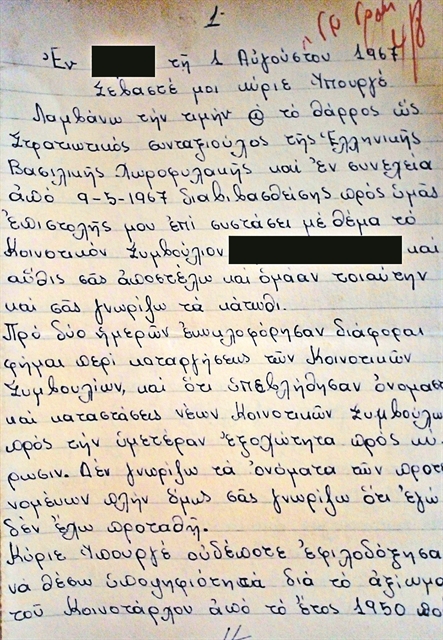 1
Ἐν τῇ 1 Αὐγούστου 1967
Σεβαστέ μοι κύριε Ὑπουργέ
Λαμβάνω τήν τιμήν @ τό θάρρος ὡς
Στρατιωτικός συνταξιοῦχος τῆς Ἑλληνικῆς
Βασιλικῆς Χωροφυλακῆς καί ἐν συνεχεία
ἀπό 9-5-1967 διαβιβασθείσης πρός ὑμᾶς
ἐπιστολῆς μου ἐπί συστάσει μέ θέμα τό
Κοινοτικόν Συμβούλιον καί
αὖθις σᾶς ἀποστέλω καί τοιαύτην
καί σᾶς γνωρίζω τά κάτωθι.
Πρό δύο ἡμερῶν ἐκυκλοφόρησαν διάφοραι
φῆμαι περί καταργήσεως τῶν Κοινοτικῶν
Συμβουλίων, καί ὅτι ὑπεβλήθησαν ὀνομαστ
καί καταστάσεις νέων Κοινοτικῶν Συμβούλω
πρός τήν ὑμετέραν ἐξοχώτητα πρός κύ-
ρωσιν. Δέν γνωρίζω τά ὀνόματα τῶν προτ
νομένων πλήν ὅμως σᾶς γνωρίζω ὅτι ἐγώ
δέν ἔχω προταθῆ.
Κύριε Ὑπουργέ οὐδέποτε ἐφιλοδόξησα
νά θέσω ὑποψηφιότητα διά τό ἀξίωμα
τοῦ Κοινοτάρχου ἀπό τό ἔτος 1950